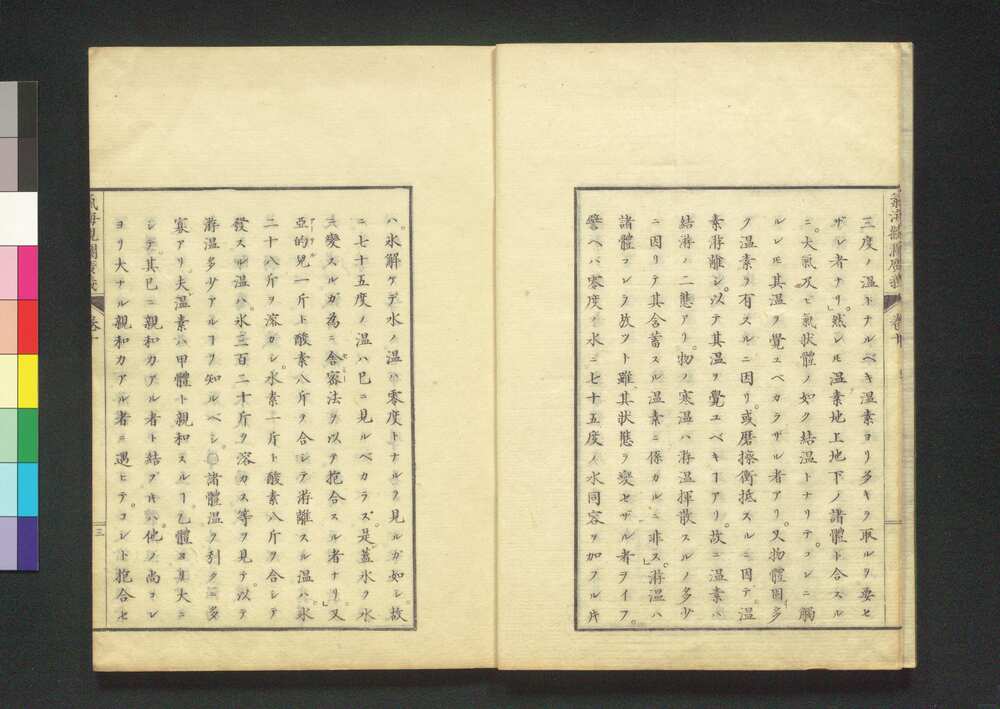 三度ノ温トナルベキ温素ヨリ多キヲ取ルヲ要セ
ザレ者ナリ。然レヒ温素地上地下ノ諸體ト合スル
ニ。大氣及ヒ氣状體ノ如ク結温トナリテ。コレニ觸
ルレモ其温ヲ覺ユベカラザル者アリ。又物體固多
ク温素ヲ有スルニ因リ。或磨擦衝抵スルニ因テ。温
素游離シ。以テ其温ヲ覺ユベキーアリ。故ニ温素ハ
結游ノ二態アリ。物ノ寒温ハ游温揮散スルノ多少
ニ因リテ其含蓄スル温素ニ係カルニ非ス。」游温ハ
諸體コレヲ放ツト雖。其状態ヲ變セザル者ヲイフ。
譬ヘバ零度ノ水ニ七十五度ノ水同容ヲ加フル片
氣海觀瀾廣義
卷十
ハ。氷解ケデ水ノ温ハ零度トナルヲ見ルガ如シ。故
ニ七十五度ノ温ハ巳ニ見ルベカラズ。是蓋氷ク水
ニ變スルガ為ニ含容法ヲ以テ抱合スル者ナリ。」又
亞的兒一斤ト酸素八斤ヲ合シテ游離スル温ハ。氷
二十八斤ヲ溶カシ。水素一斤ト酸素八斤ヲ合シテ
發スル温ハ。氷三百二十斤ヲ溶カス等ヲ見テ。以テ
游温多少アルーヲ知ルベシ。諸體温ヲ引クニ多
寡アリ。夫温素ハ甲體ト親和スルー乙體ヨリ大ニ
シテ。其巳ニ親和力アル者ト結ブモ。他ノ尚コレ
ヨリ大ナル親和力アル者ニ遇ヒテ。コレト抱合セ
氣海觀瀾廣義
卷十
三